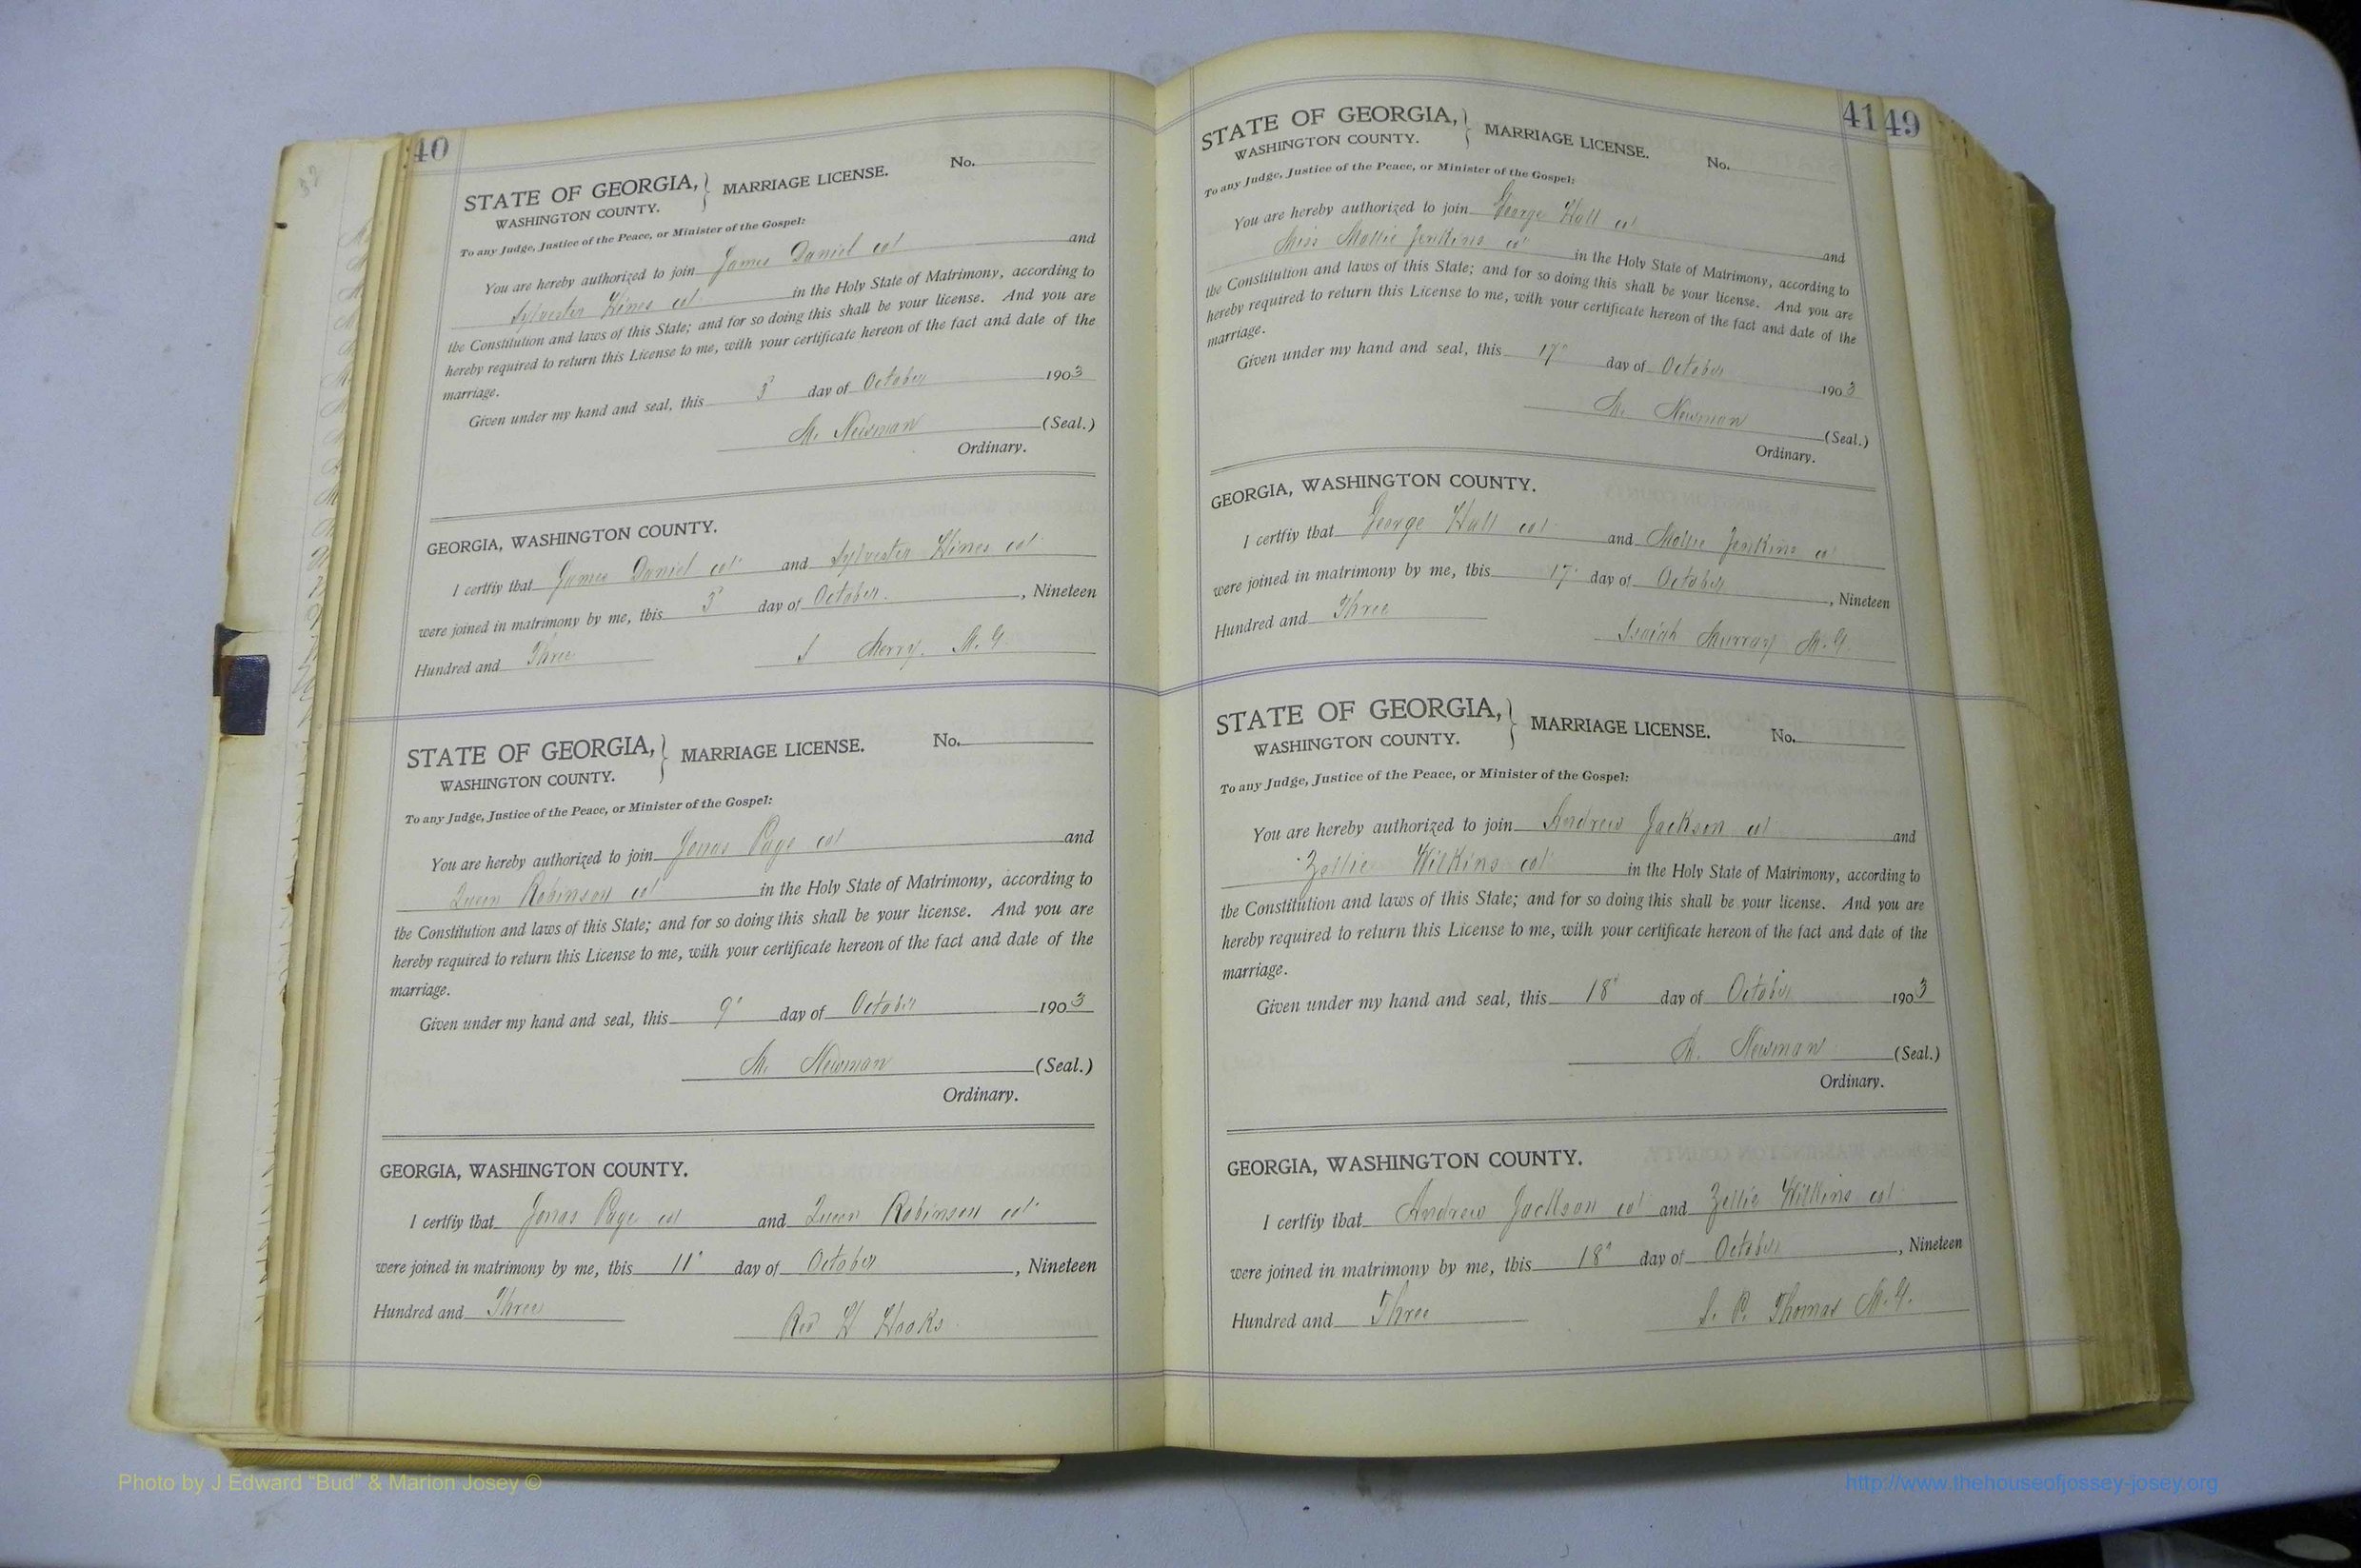 40
STATE OF GEORGIA, } MARRIAGE LICENSE. No.
WASHINGTON COUNTY.
To any Judge, Justice of the Peace, or Minister of the Gospel:
You are hereby authorized to join James Daniel col and
Sylvester Hines col in the Holy State of Matrimony, according to
the Constitution and laws of this State; and for so doing this shall be your license. And you are
hereby required to return this License to me, with your certificate hereon of the fact and date of the
marriage.
Given under my hand and seal, this day of October 1903
M. Newman (Seal.)
Ordinary.
GEORGIA, WASHINGTON COUNTY.
I certfiy that James Daniel col and Sylvester Hines col
were joined in matrimony by me, this day of October, Nineteen
Hundred and Three Merry. M.G
STATE OF GEORGIA, } MARRIAGE LICENSE. No.
WASHINGTON COUNTY.
To any Judge, Justice of the Peace, or Minister of the Gospel:
You are hereby authorized to join Jonas Page col and
Queen Robinson col in the Holy State of Matrimony, according to
the Constitution and laws of this State; and for so doing this shall be your license. And you are
hereby required to return this License to me, with your certificate hereon of the fact and date of the
marriage.
Given under my hand and seal, this 9" day of October 1903
M. Newman (Seal.)
Ordinary.
GEORGIA, WASHINGTON COUNTY.
I certfiy that Jonas Page col and Queen Robinson col
were joined in matrimony by me, this 11" day of October, Nineteen
Hundred and Three Rev H Hooks
41 49
STATE OF GEORGIA, } MARRIAGE LICENSE. No.
WASHINGTON COUNTY.
To any Judge, Justice of the Peace, or Minister of the Gospel:
You are hereby authorized to join George Hall col and
Miss Mollie Jenkins col in the Holy State of Matrimony, according to
the Constitution and laws of this State; and for so doing this shall be your license. And you are
hereby required to return this License to me, with your certificate hereon of the fact and date of the
marriage.
Given under my hand and seal, this 17" day of October 1903
M. Newman (Seal.)
Ordinary.
GEORGIA, WASHINGTON COUNTY.
I certfiy that George Hall col and Mollie Jenkins col
were joined in matrimony by me, this 17" day of October, Nineteen
Hundred and Three Isaiah Murray M.G.
STATE OF GEORGIA, } MARRIAGE LICENSE. No.
WASHINGTON COUNTY.
To any Judge, Justice of the Peace, or Minister of the Gospel:
You are hereby authorized to join Andrew Jackson col and
Zellie Wilkins col in the Holy State of Matrimony, according to
the Constitution and laws of this State; and for so doing this shall be your license. And you are
hereby required to return this License to me, with your certificate hereon of the fact and date of the
marriage.
Given under my hand and seal, this 18" day of October 1903
M. Newman (Seal.)
Ordinary.
GEORGIA, WASHINGTON COUNTY.
I certfiy that Andrew Jackson col and Zellie Wilkins col
were joined in matrimony by me, this 18" day of October, Nineteen
Hundred and Three S. P. Thomas M.G.
Photo by J Edward "Bud" & Marion Josey ©
http://www.thehouseofjossey-josey.org